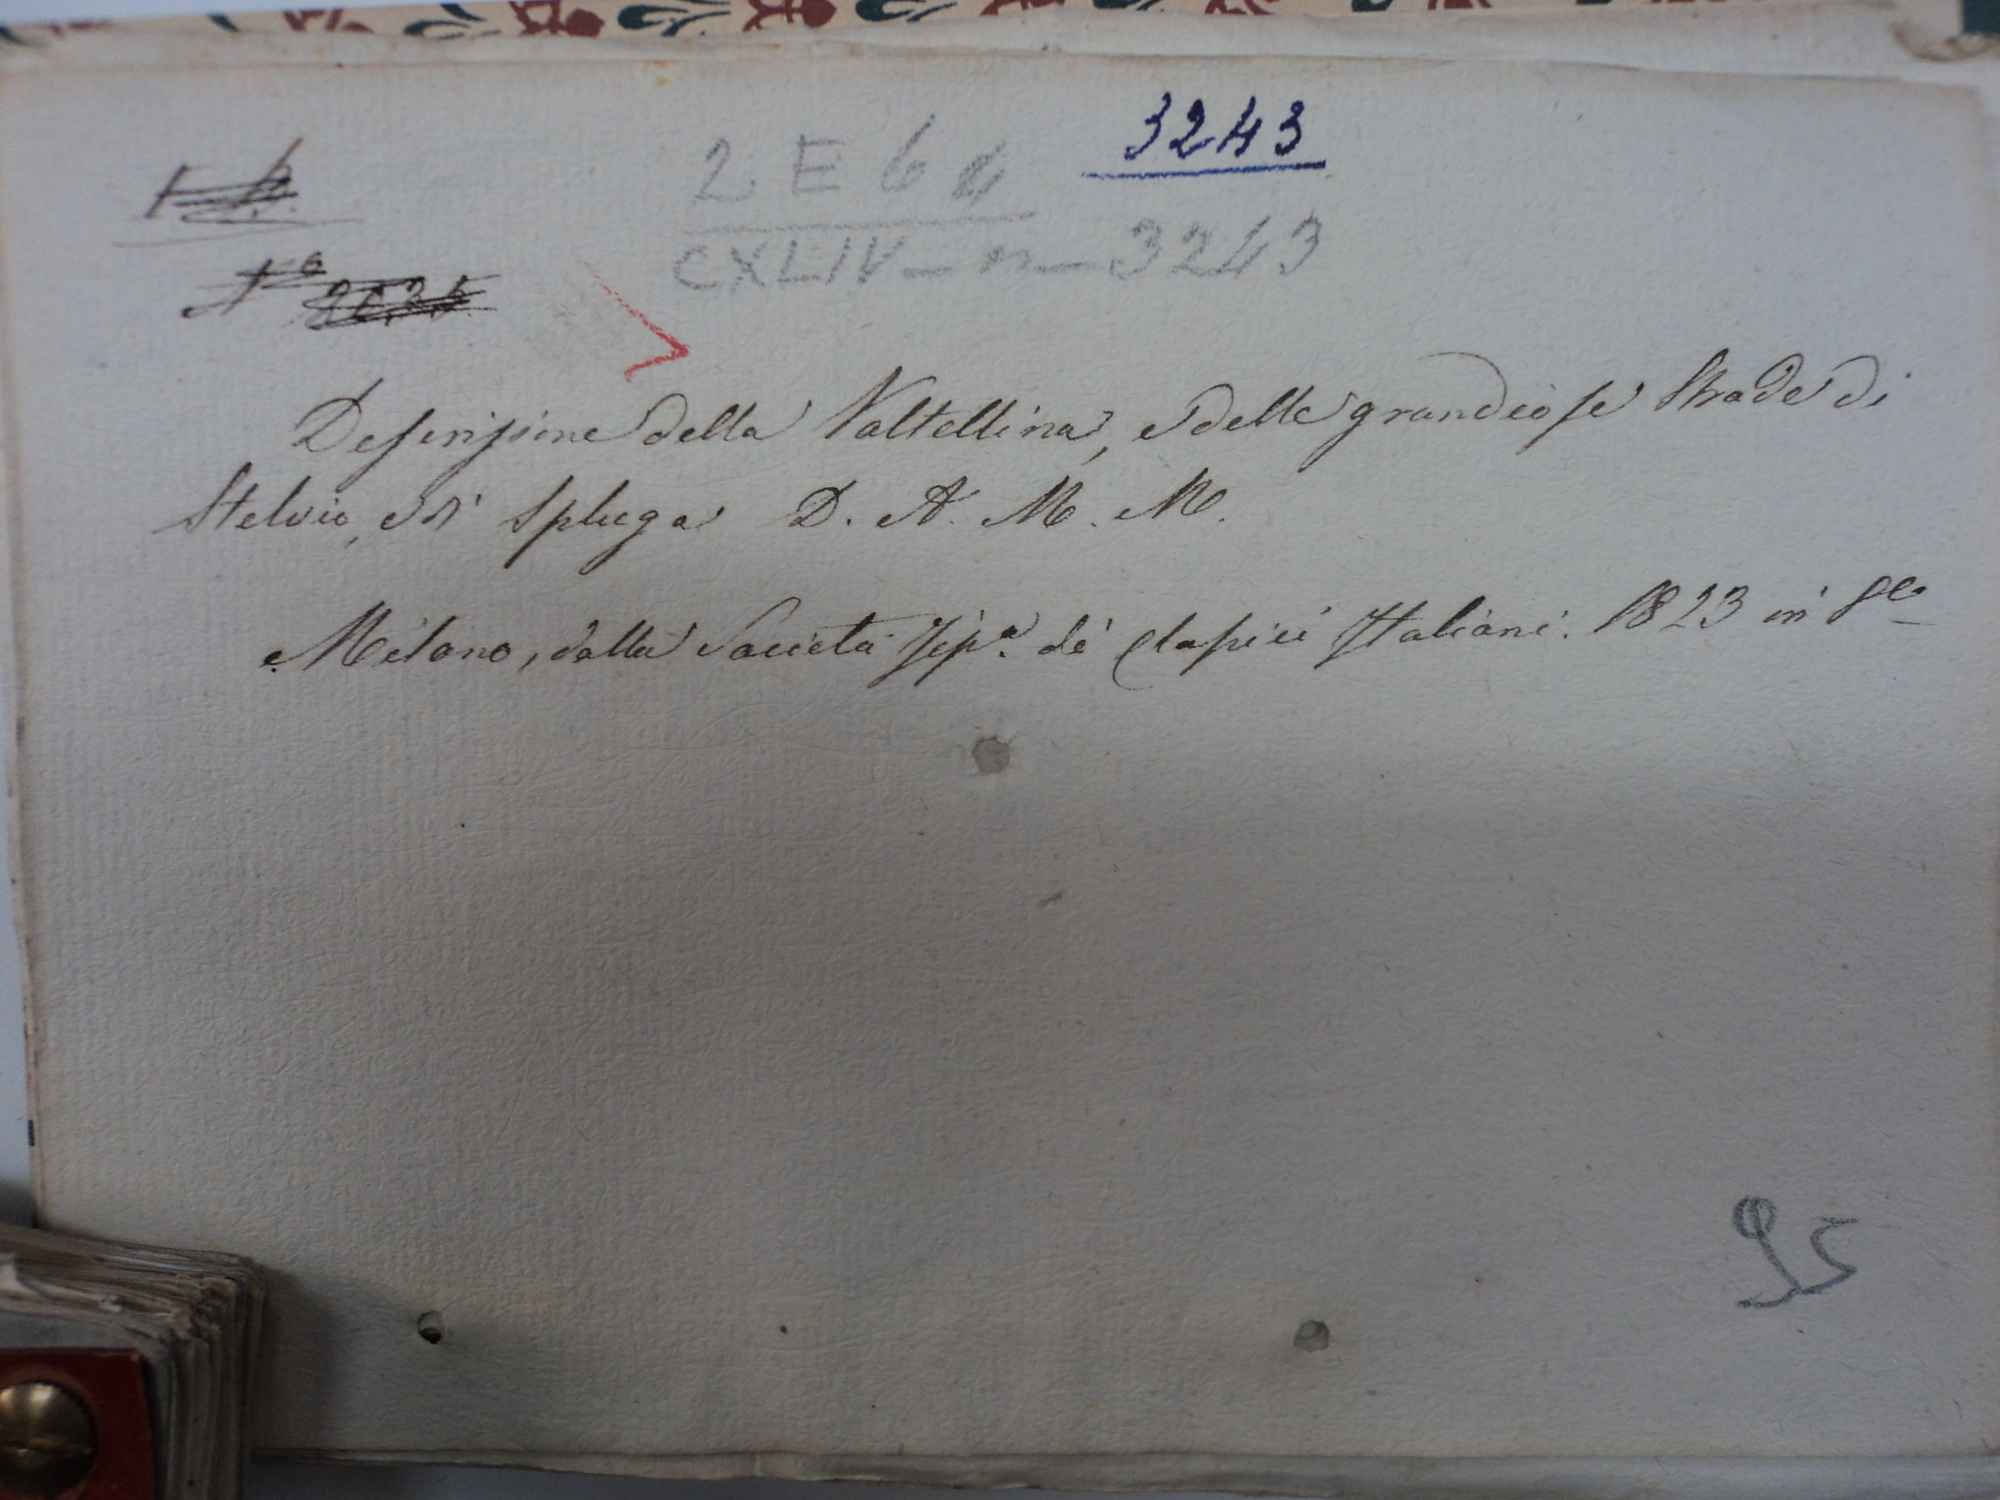 3243
2 E 6
CXLIV-n-3243
Nº
Descrizione della Valtellina, e delle grandiose Strade di
Stelvio, e di Spluga D. A. M. M.
Milano, dalla Società Tip.ª de' Classici Italiani. 1823 in 8º
95